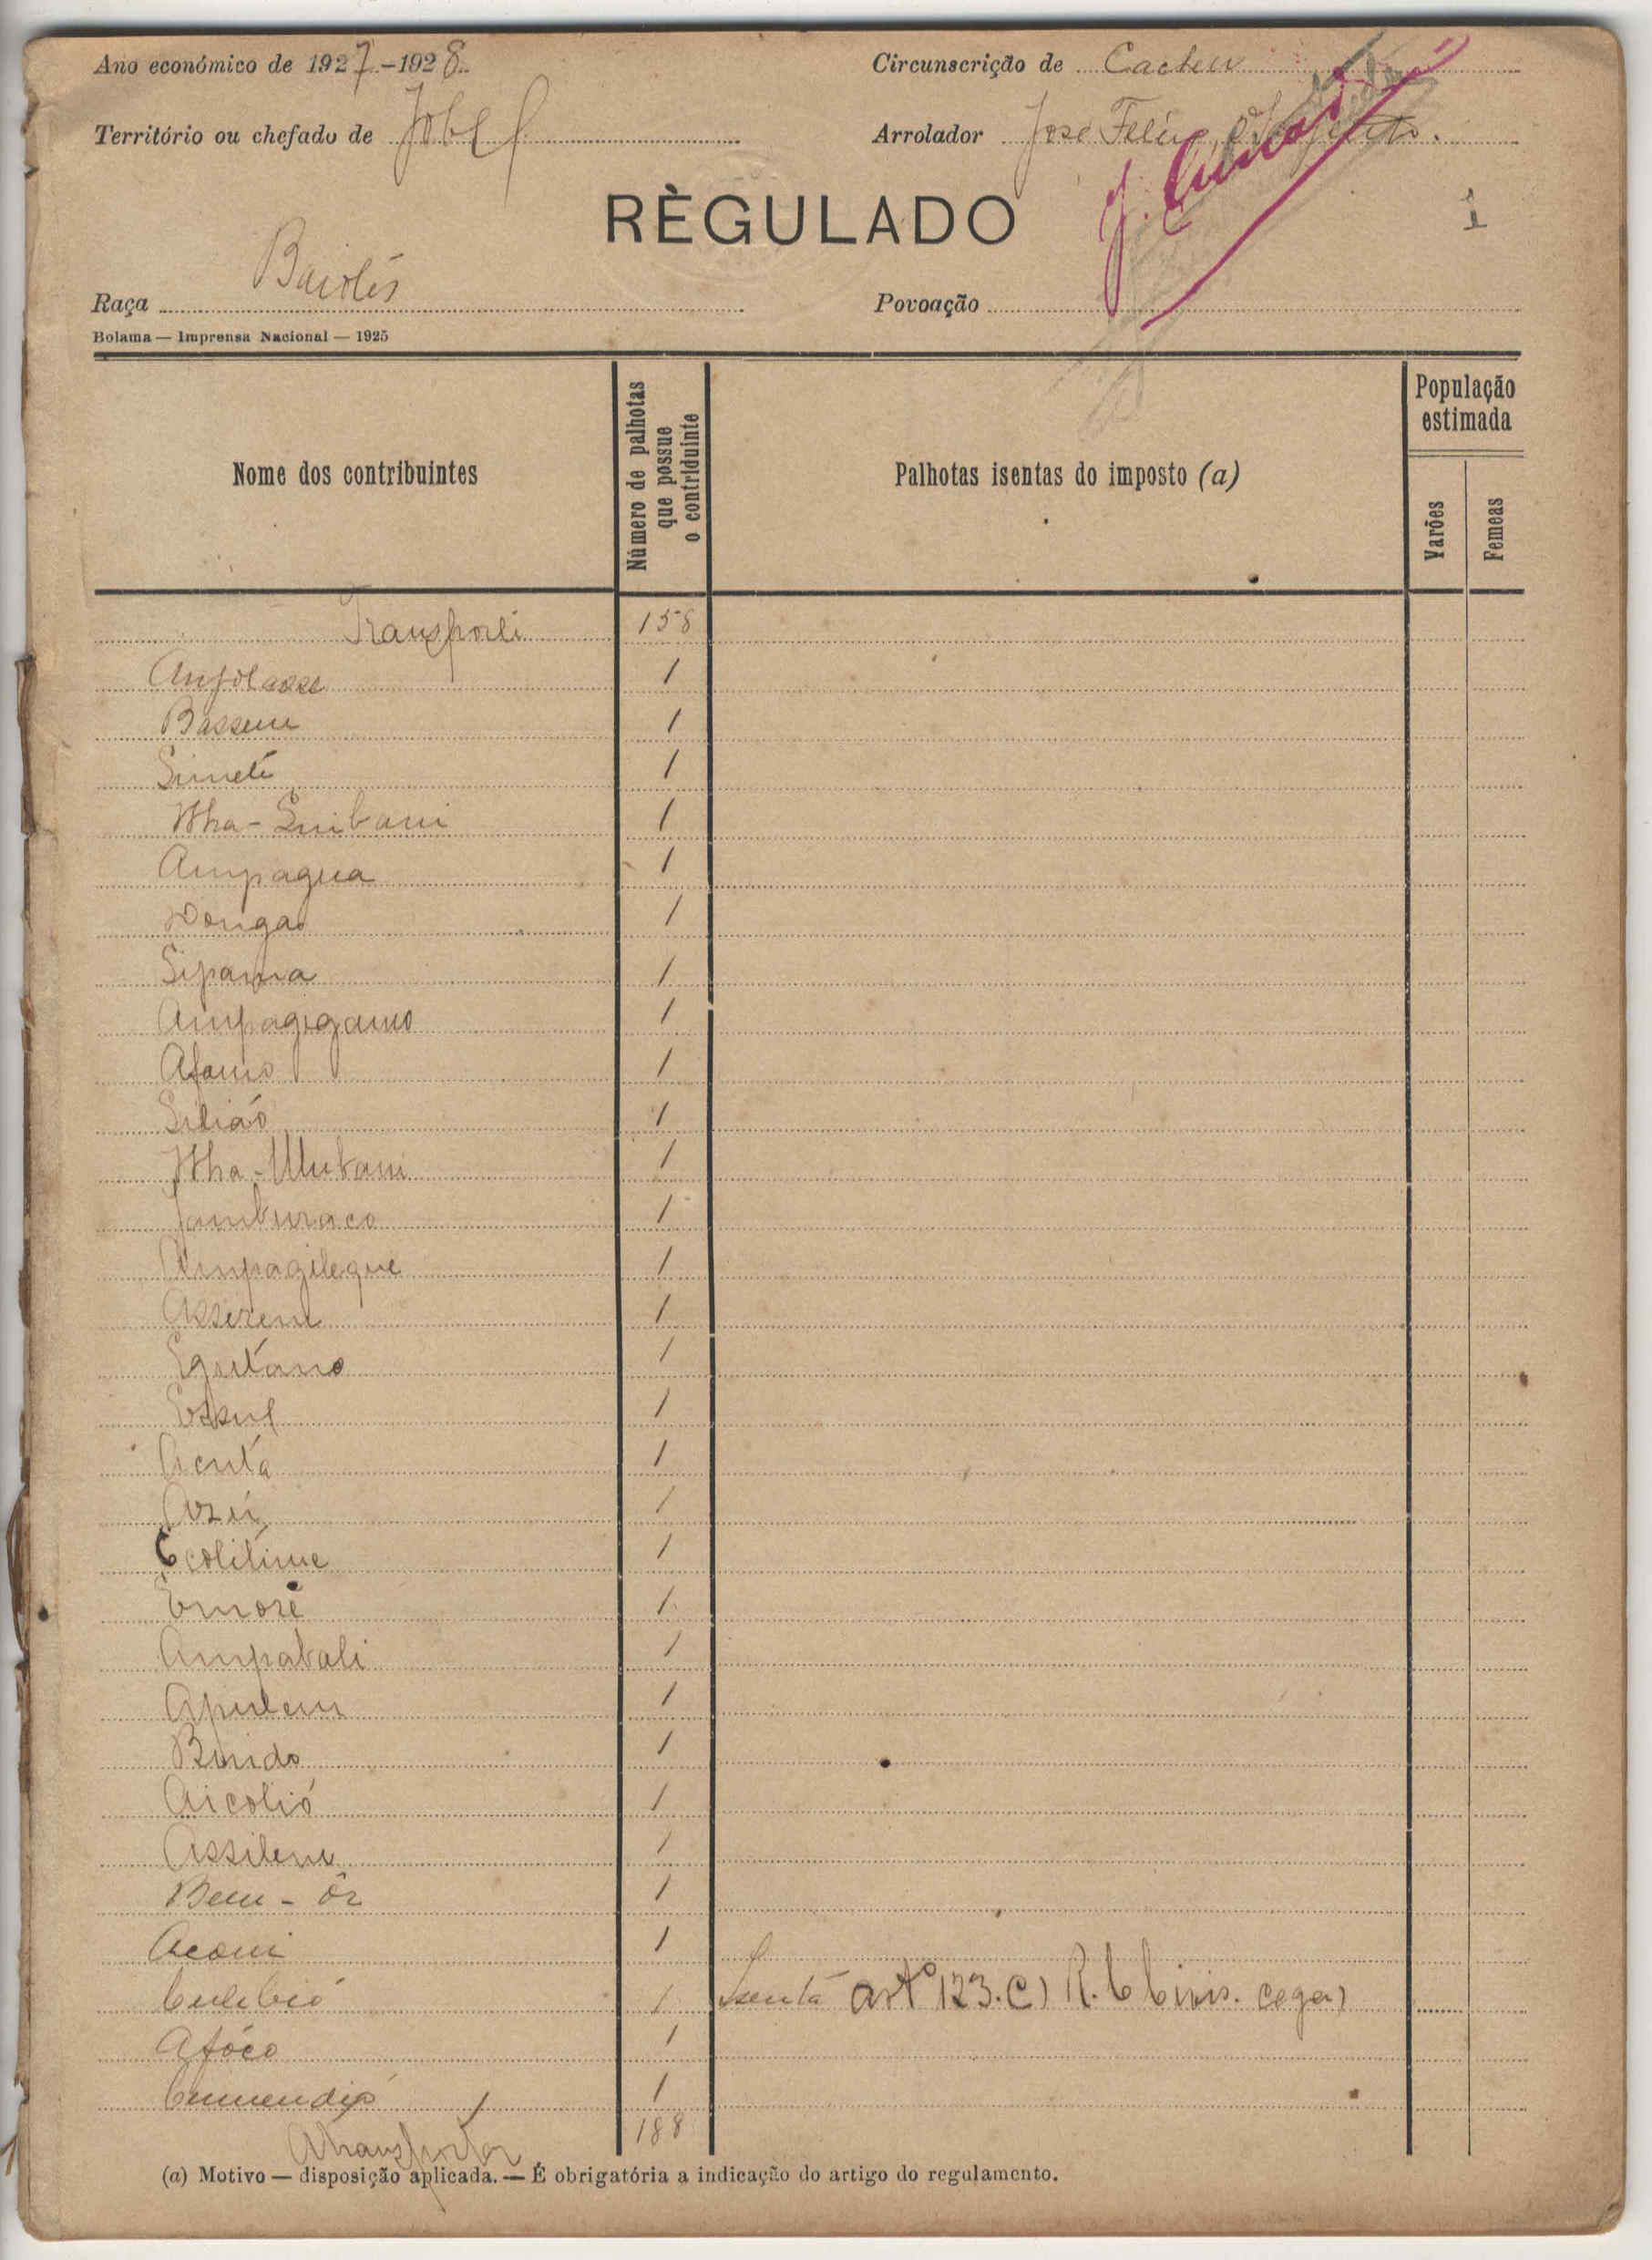 Ano económico de 1927-1928 Circunscrição de Cacheu
Território ou chefado de Jobel Arrolador José Feliz
RÈGULADO
1
Raça Baiotes Povoação
Bolama — Imprensa Nacional — 1925
Nome dos contribuintes
Número de palhotas que possue o contriduinte
Palhotas isentas do imposto (a)
População estimada
Varões
Femeas
Transporte 158
Anfolasse 1
Bassem 1
Simeti 1
1
Ampagua 1
Dongas 1
Sipama 1
Ampagigamo 1
Afamo 1
Silião 1
1
Jamburaco 1
Ampagilegue 1
Asserem 1
Egutano 1
1
Acutá 1
1
Ecolitime 1
Emoré 1
Ampabali 1
Apulem 1
Bindo 1
Aicolió 1
Assilem 1
Bem-ôr 1
Acomi 1
1 Isenta artº 123. C) R. C Civis. cega)
Afóco 1
1
A transportar 188
(a) Motivo — disposição aplicada. — É obrigatória a indicação do artigo do regulamento.